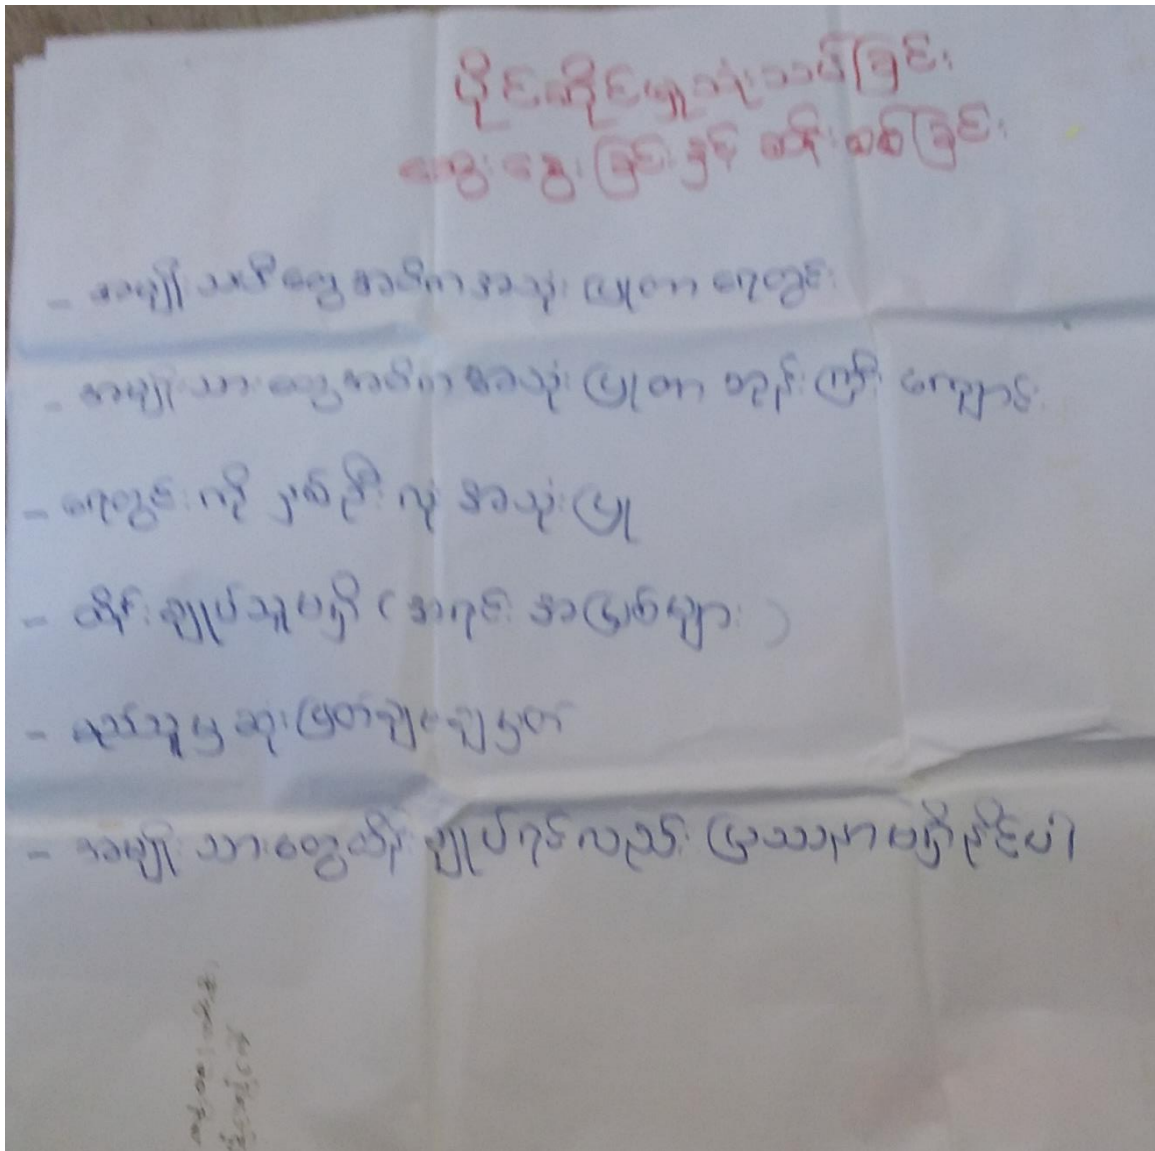 ပိုင်ဆိုင်မှုသုံးသပ်ခြင်း
ဆွေးနွေးခြင်းနှင့် ဆန်းစစ်ခြင်း
- အမျိုးသမီးတွေအဓိကအသုံးပြုတာ ရေတွင်း
- အမျိုးသားတွေအဓိကအသုံးပြုတာ ဘုန်းကြီးကျောင်း
- ရေတွင်းကို နှစ်ဦးလုံးအသုံးပြု
- ထိန်းချုပ်သူမရှိ (အရင်းအမြစ်များ)
- မည်သူမှ ဆုံးဖြတ်ချမချမှတ်
- အမျိုးသားတွေထိန်းချုပ်ရင်လည်း ပြဿနာမရှိနိုင်ပါ